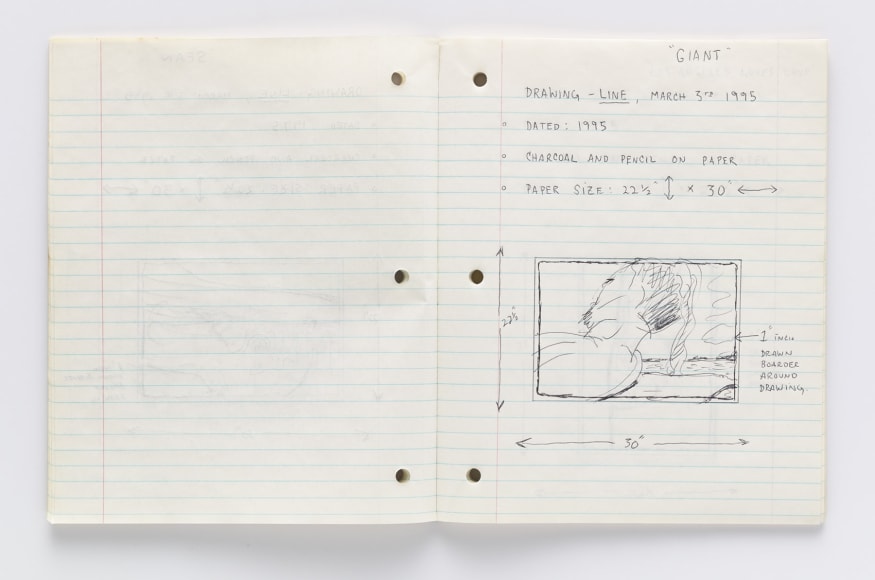 "GIANT"
DRAWING - LINE, MARCH 3RD 1995
° DATED: 1995
° CHARCOAL AND PENCIL ON PAPER
° PAPER SIZE: 22½" ↕ × 30" ↔
22½"
1" INCH
DRAWN
BOARDER
AROUND
DRAWING.
30"